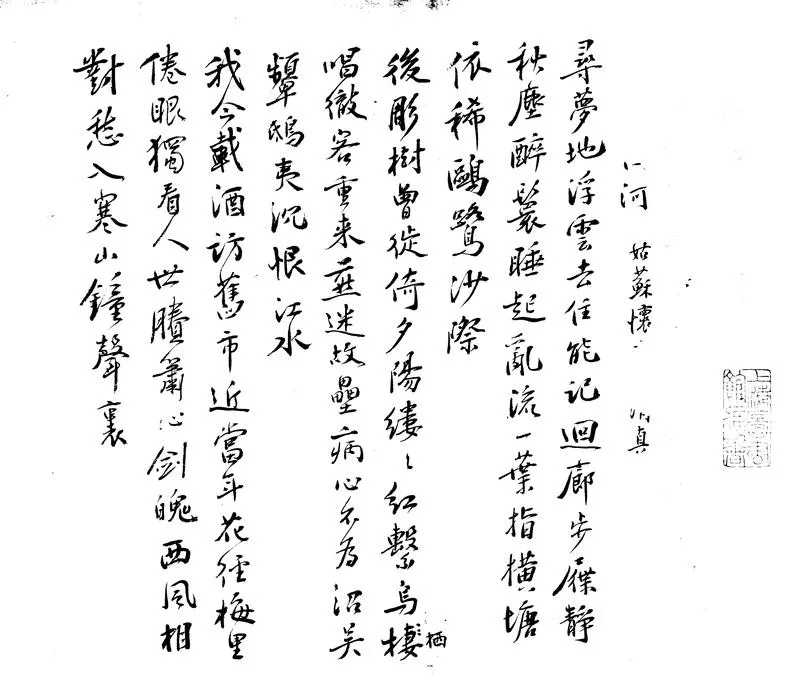 河 姑蘇懷 真
尋夢地浮雲去住能記迴廊步屧靜
秋塵醉鬟睡起亂流一葉指橫塘
依稀鷗鷺沙際
後彫樹曾從倚夕陽縷〻紅繫烏棲栖
唱徹客重来燕迷故壘病心不為沼吳
顰鴟夷沉恨江水
我今載酒訪舊市近當年花徑梅里
倦眼獨看人世賸簫心劍魄西風相
對愁入寒山鐘聲裏